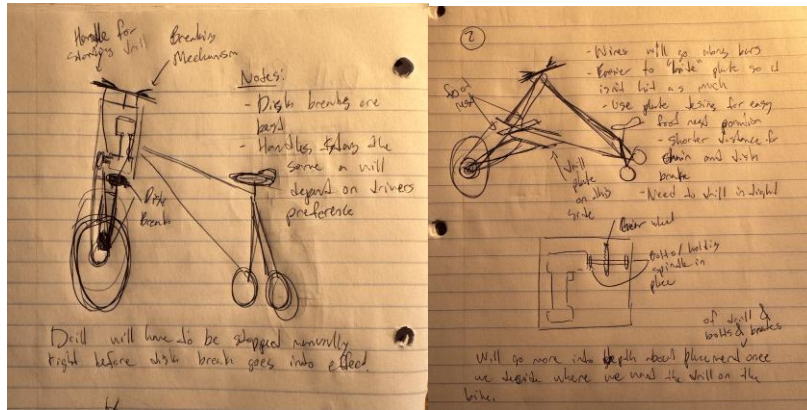 Handle for
starting drill
Breaking
Mechanism
Notes:
- Disk breaks are
best
- Handles stay the
same a will
depend on drivers
preference
Disk
Break
Drill will have to be stopped manually
right before disk break goes into effect.
2
- Wires will go along bars
- Easier to "hide" plate so it
isn't hit as much
- Use plate desing for easy
foot rest position
- Shorter distance for
chain and disk
brake
- Need to drill in tight
foot
rest
drill
plate
on this
side
wheel
Bolts/holding
spindle in
place
of drill &
bolts & brakes
Will go more into depth about placement once
we decide where we want the drill on the
bike.